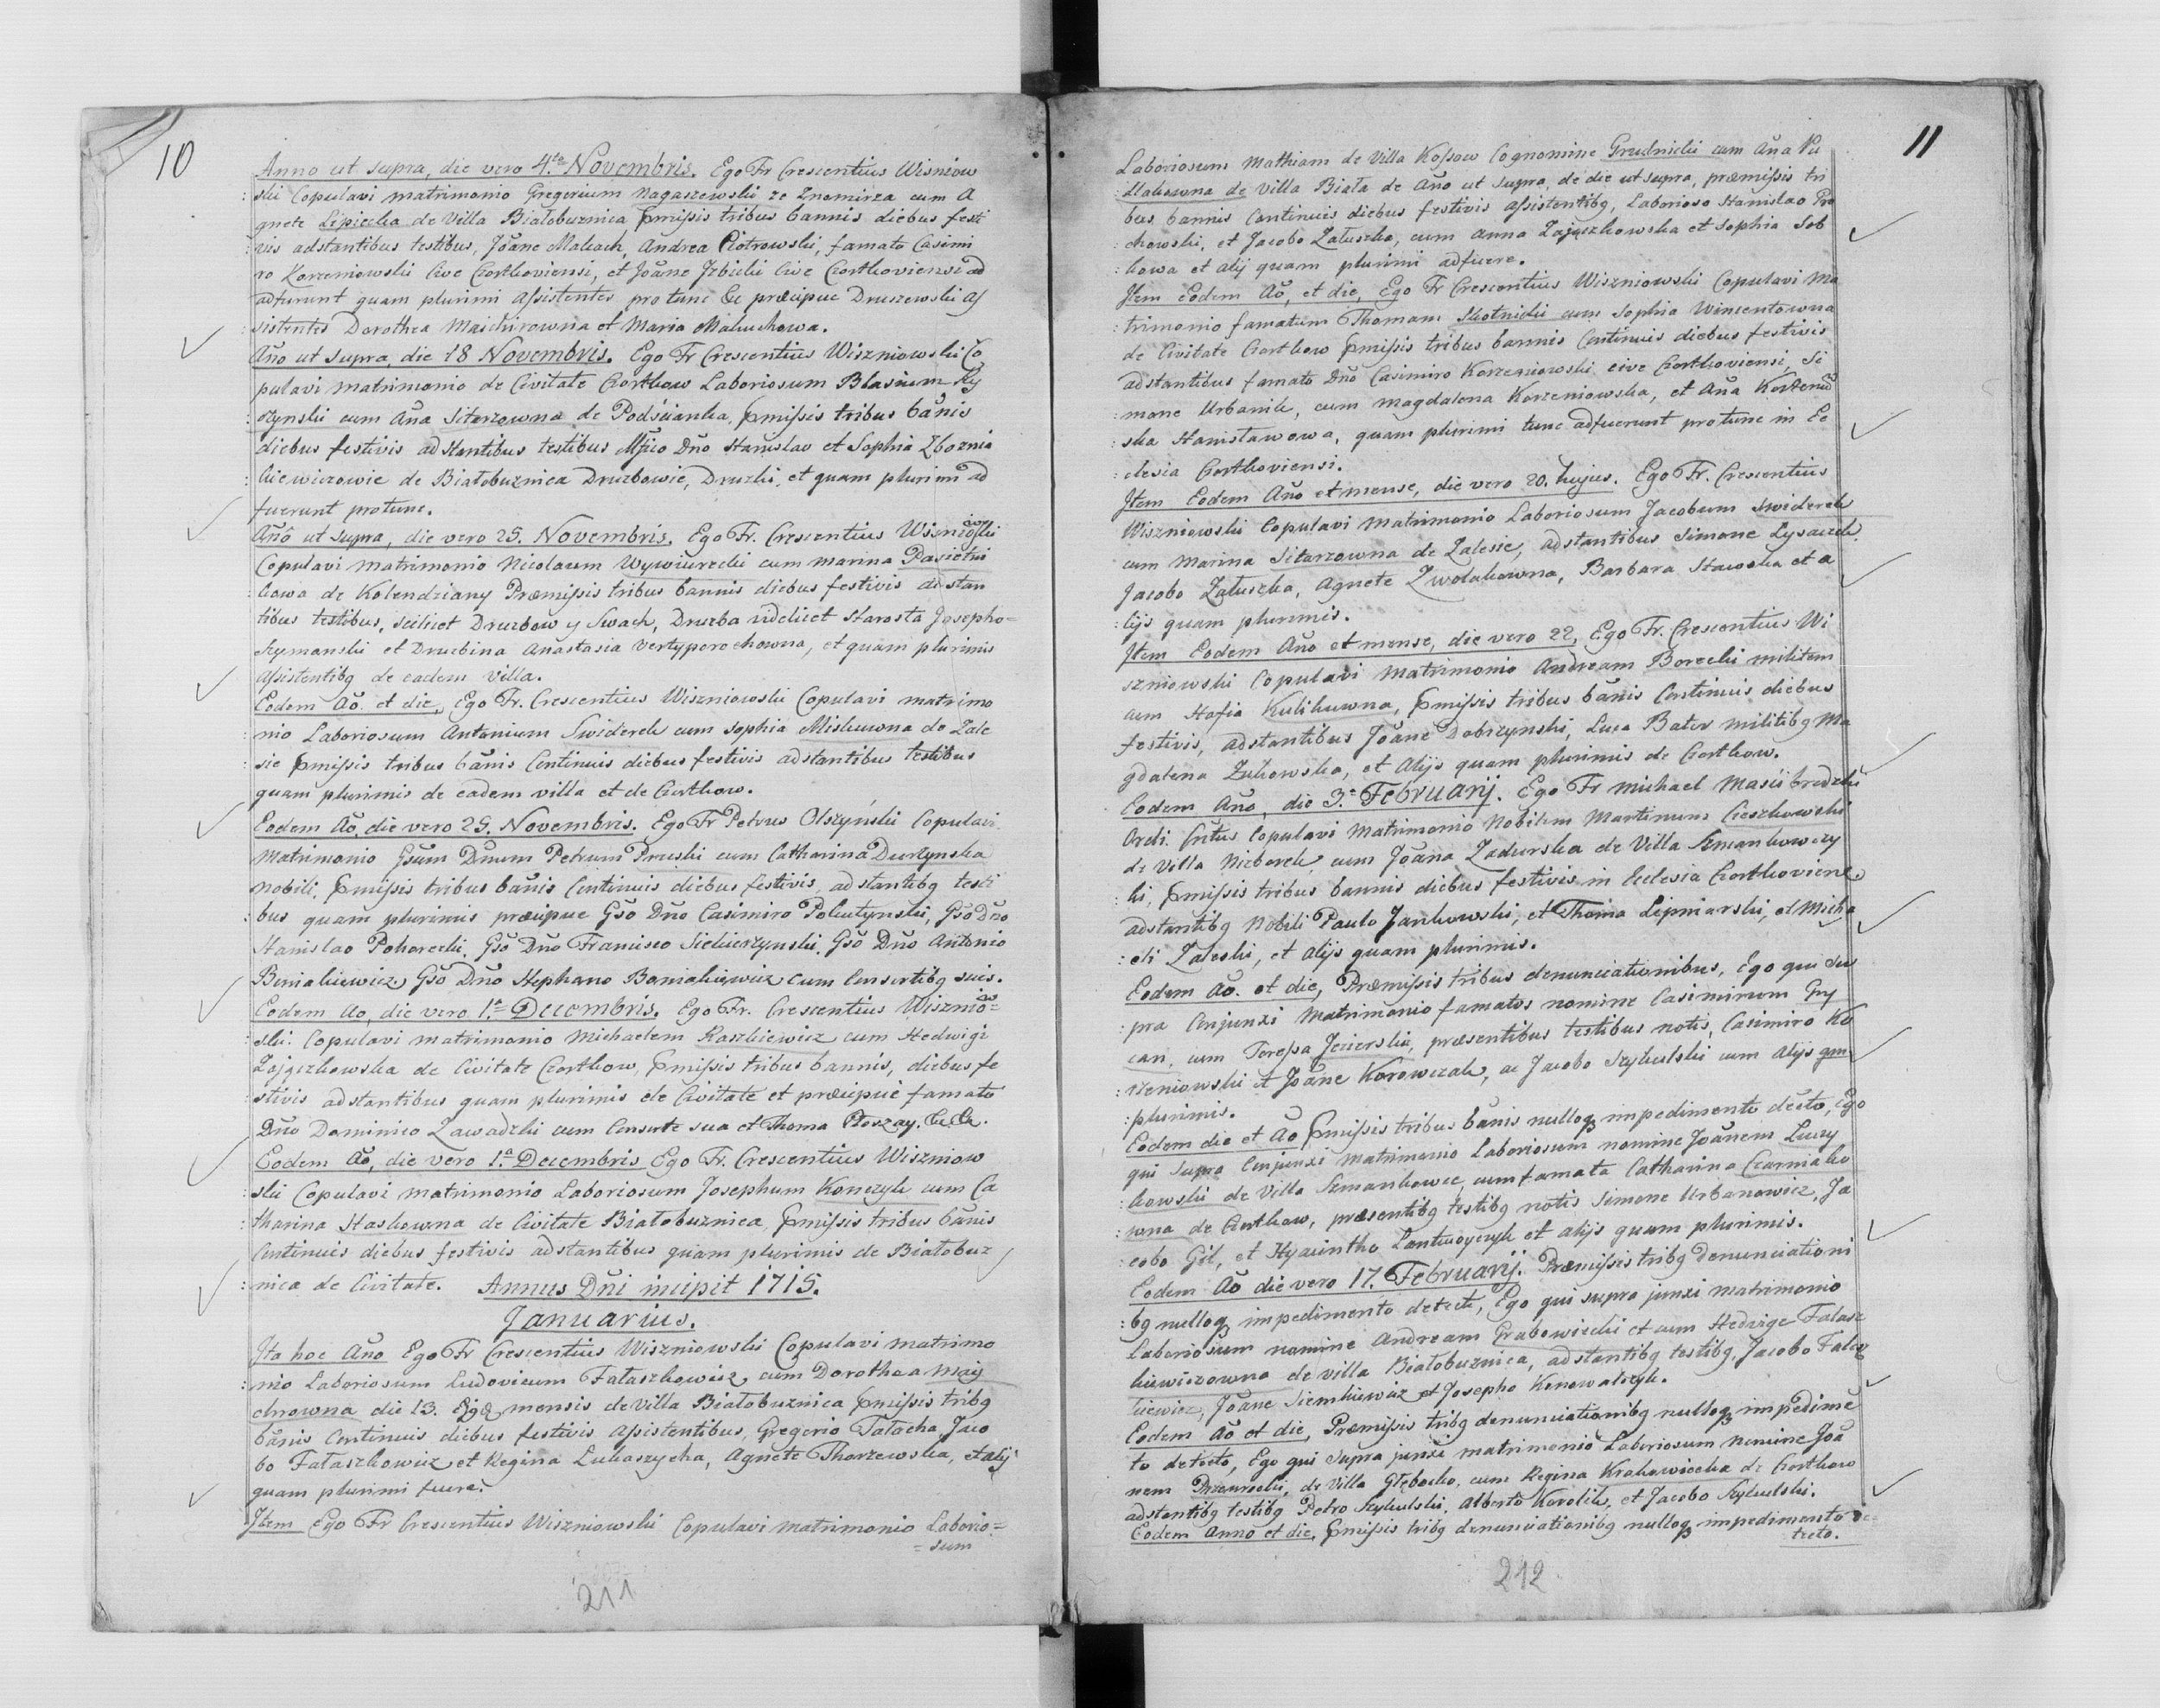 10
Anno ut supra, die vero 4ta Novembris. Ego Fr Crescentius Wiszniow
: ski Copulavi matrimonio Gregorium Nagaszewski ze Znomirza cum A
gnete Lipiecka de Villa Białobuznica pmissis tribus bannis diebus festi
: vis adstantibus testibus, Joãne Malkach, Andrea Piotrowski, famato Casimi
: ro Korzeniowski Cive Czortkoviensi, et Joãne Jzbicki Cive Czortkoviensi ad
adfuerunt quam plurimi assistentes pro tunc &c præcipue Druszewski as
: sistentes Dorothea Maichirowna et Maria Maluchowa.
Año ut supra, die 18 Novembris. Ego Fr Crescentius Wiszniowski Co
pulavi matrimonio de Civitate Czortkow Laboriosum Blasium Ky
: czynski cum Aña Sitarzowna de Podścianka, pmissis tribus bãnis
diebus festivis adstantibus testibus Mfico Dño Stanislao et Sophia Zboznia
: kiewiczowie de Białobuznica Druzbowie, Druzki, et quam plurimi ad
fuerunt protunc.
Año ut supra, die vero 25. Novembris. Ego Fr. Crescentius Wiszniowski
Copulavi matrimonio Nicolaum Wywiurecki cum Marina Daszctni
: kowa de Kolendziany Præmissis tribus bannis diebus festivis adstan
tibus testibus, scilicet Druzbow y Swach, Druzba videlicet Starosta Josepho=
Szymanski et Druzbina Anastasia Wertyporochowna, et quam plurimis
assistentibq de eadem villa.
Eodem Aõ. et die, Ego Fr. Crescentius Wiszniowski Copulavi matrimo
: nio Laboriosum Antonium Swiderek cum Sophia Miskuwna de Zale
: sie pmissis tribus bãnis Continuis diebus festivis adstantibus testibus
quam plurimis de eadem villa et de Czortkow.
Eodem Aõ, die vero 25. Novembris. Ego Fr Petrus Olszyński Copulavi
Matrimonio Gsum Dnum Petrum Pruski cum Catharina Durzynska
nobili, pmissis tribus bãnis Continuis diebus festivis, adstantibq testi
: bus quam plurimis præcipue Gso Dño Casimiro Polutynski, Gso Dño
Stanislao Pohorecki, Gso Dño Francisco Siekierzynski, Gso Dño Antonio
Beniakiewicz, Gso Dño Stephano Baniakiewicz cum Consortibq suis.
Eodem Ao, die vero 1ma Decembris. Ego Fr. Crescentius Wisznio=
: ski. Copulavi matrimonio Michaelem Raszkiewicz cum Hedwigi
Zajączkowska de Civitate Czortkow, pmissis tribus bannis, diebus fe
: stivis adstantibus quam plurimis de Civitate et præcipue famato
Dño Dominico Zawadzki cum Consorte sua et Thoma Ptoszay. &c &c.
Eodem Aõ, die vero 1ma Decembris Ego Fr. Crescentius Wiszniow
: ski Copulavi matrimonio Laboriosum Josephum Konczyk cum Ca
: tharina Staskowna de Civitate Białobuznica, pmissis tribus bãnis
Continuis diebus festivis adstantibus quam plurimis de Białobuz
: nica de Civitate. Annus Dñi incipit 1715.
Januarius.
Jta hoc Año Ego Fr Crescentius Wiszniowski Copulavi matrimo
: nio Laboriosum Ludovicum Fataszkowicz, cum Dorothea May
chrowna die 13. mensis de villa Białobuznica pmissis tribq
bãnis Continuis diebus festivis assistentibus, Gregorio Tatacha, Jaco
bo Fataszkowicz et Regina Lukaszycha, Agnete Thorzewska, et alij
quam plurimi fuere.
Jtem Ego Fr Crescentius Wiszniowski Copulavi matrimonio Laborio=
= sum
211
11
Laboriosum Mathiam de Villa Kossow Cognomine Grudnicki cum Aña Pu
: dlakowna de Villa Biała de Año ut supra, de die ut supra, præmissis tri
bus bannis Continuis diebus festivis assistentibq, Laborioso Stanislao Gro
: chowski, et Jacobo Zatuszka, cum Anna Zajączkowska et Sophia Sob
: kowa et alij quam plurimi adfuere.
Jtem Eodem Aõ, et die, Ego Fr Crescentius Wiszniowski Copulavi Ma
: trimonio famatum Thomam Skotnicki cum Sophia Wincentowna
de Civitate Czortkow pmissis tribus bannis Continuis diebus festivis
adstantibus famato Dño Casimiro Korzeniowski cive Czortkoviensi, Si
: mone Urbanik, cum Magdalena Korzeniowska, et Aña Korzenio
: ska Stanisławowa, quam plurimi tunc adfuerunt protunc in Ec
: clesia Czortkoviensi.
Jtem Eodem Año et mense, die vero 20. hujus. Ego Fr. Crescentius
Wiszniowski Copulavi Matrimonio Laboriosum Jacobum Swiderek
cum Marina Sitarzowna de Zalesie, adstantibus Simone Lysaczek
Jacobo Zatuszka, Agnete Zwolakowna, Barbara Stawska et a
: lijs quam plurimis.
Jtem Eodem Año et mense, die vero 22, Ego Fr. Crescentius Wi
szniowski Copulavi Matrimonio Andream Borecki militem
cum Stofia Kulikuwna, pmissis tribus bãnis Continuis diebus
festivis, adstantibus Joãne Dobrzynski, Luca Bator militibq Ma
gdalena Zukowska, et alijs quam plurimis de Czortkow.
Eodem Año, die 3. Februarij. Ego Fr Michael Masibrodzki
Ordi. Cntus Copulavi Matrimonio Nobilem Martinum Cieszkowski
de Villa Nizborek, cum Joãna Zadurska de Villa Szmankowczy
ki, pmissis tribus bannis diebus festivis in Ecclesia Czortkoviens.
adstantibq Nobili Paulo Jankowski, et Thoma Lipniarski, et Micha
: eli Zaleski, et alijs quam plurimis.
Eodem Aõ. et die, Præmissis tribus denunciationibus, Ego qui su
: pra Conjunxi Matrimonio famatos nomine Casimirum Gry
can, cum Teressa Jezierska, præsentibus testibus notis, Casimiro Ko
: rzeniowski et Joãne Korowczak, ac Jacobo Szykulski cum alijs qm
: plurimis.
Eodem die et Aõ pmissis tribus bãnis nulloq impedimento decto, Ego
qui supra Conjunxi Matrimonio Laboriosum nomine Joãnem Luczy
: kowski de Villa Szmankowce, cum famata Catharina Czarniako
: wna de Czortkow, præsentibq testibq notis Simone Urbanowicz, Ja
: cobo Gil, et Hyacintho Lantwoyczyk et alijs quam plurimis.
Eodem Aõ die vero 17. Februarij. Præmissis tribq denunciationi
: bq nulloq impedimento detecto, Ego qui supra junxi matrimonio
Laboriosum nomine Andream Grabowiecki et cum Hedvige Fatasz
kiewiczowna de villa Białobuznica, adstantibq testibq, Jacobo Fatasz
kiewicz, Joãne Siemkiewicz et Josepho Konowalczyk.
Eodem Aõ et die, Præmissis tribq denunciationibq nulloq impedime
to detecto, Ego qui supra junxi matrimonio Laboriosum nomine Joã
nem Drzewiecki, de Villa Głęboka, cum Regina Krakowiecka de Czortkow
adstantibq testibq Petro Szykulski, Alberto Karolik, et Jacobo Szykulski.
Eodem Anno et die, pmissis tribq denunciationibq nulloq impedimento de=
tecto.
212